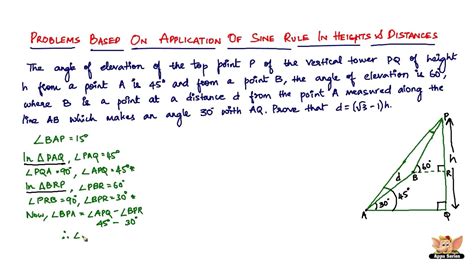 PROBLEMS BASED ON APPLICATION OF SINE RULE IN HEIGHTS & DISTANCES
The angle of elevation of the top point P of the vertical tower PQ of height
h from a point A is 45° and from a point B, the angle of elevation is 60°,
where B is a point at a distance d from the point A measured along the
line AB which makes an angle 30° with AQ. Prove that d = (√3 - 1)h.
∠BAP = 15°
In △PAQ, ∠PAQ = 45°
∠PQA = 90°, ∠APQ = 45°*
In △BRP, ∠PBR = 60°
∠PRB = 90°, ∠BPR = 30°*
Now, ∠BPA = ∠APQ - ∠BPR
45° - 30°
∴ ∠
P
h
60°
R
B
d
45°
30°
A
Q
Apps Series